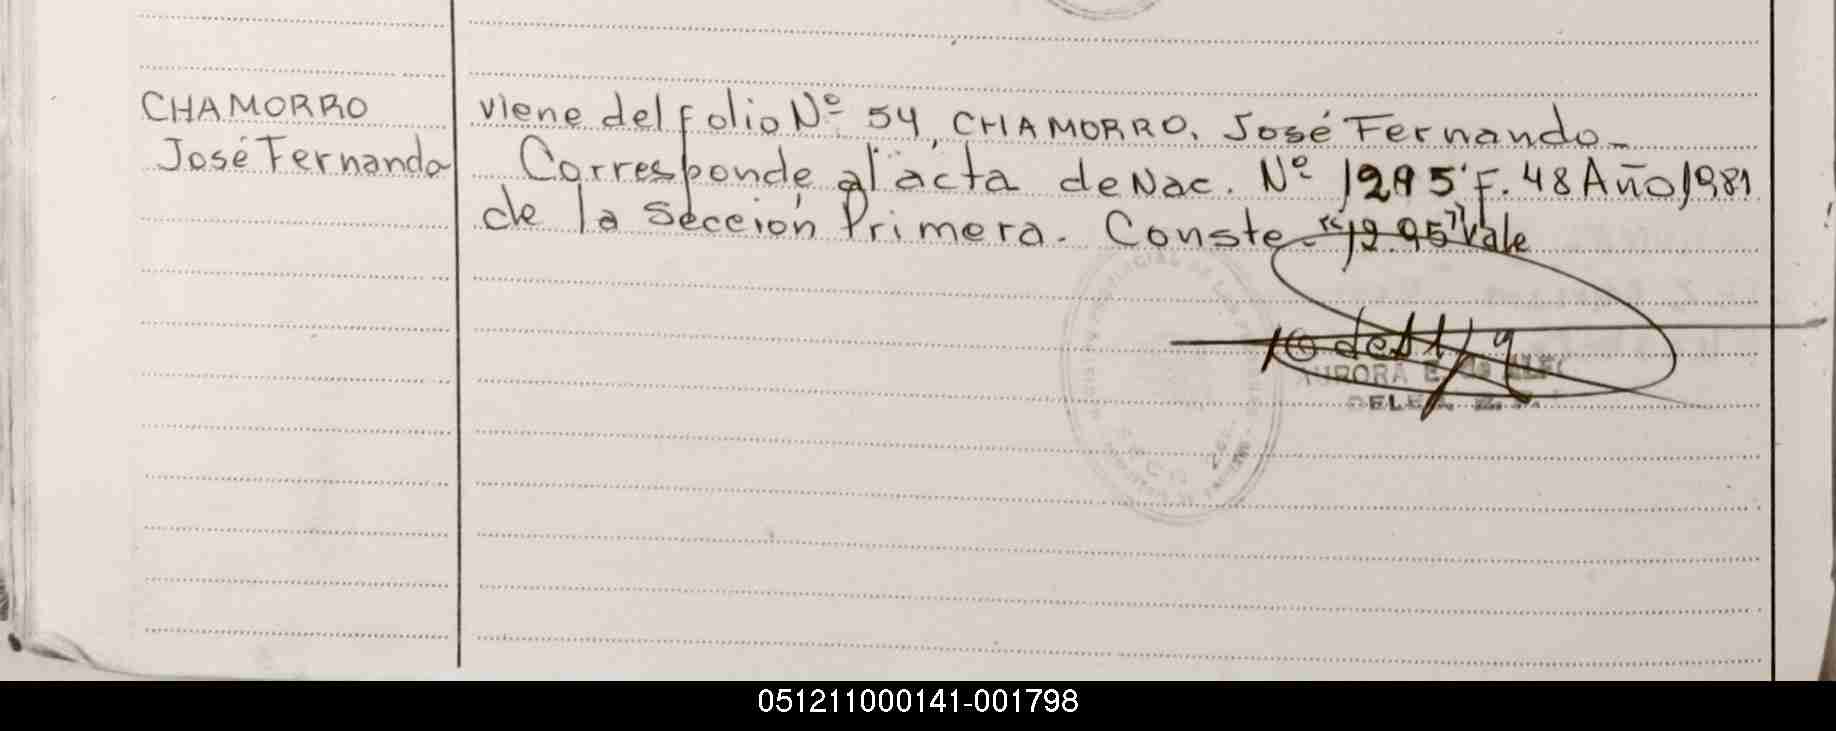 CHAMORRO
José Fernando
viene del folio Nº 54, CHAMORRO, José Fernando_
Corresponde al acta de Nac. Nº 1295 F. 48 Año 1981
de la sección Primera. Conste. "1295" Vale
AURORA E. de
051211000141-001798